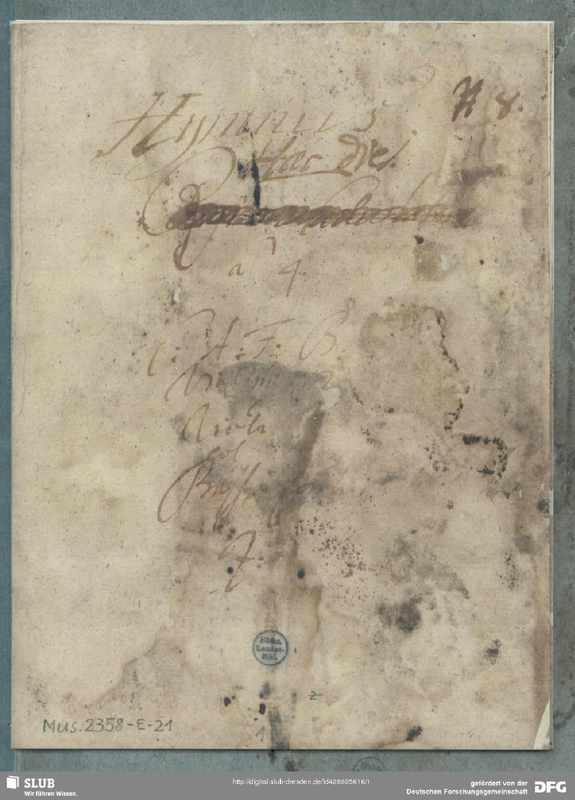 N 8.
Hymnus
Hac die
a 4.
C. A. T. B.
Violin 2
Viola
col
Basso
Z.
Sächs.
Landes-
Bibl.
2
1
Mus. 2358-E-21
SLUB
Wir führen Wissen.
http://digital.slub-dresden.de/id426605616/1
gefördert von der
Deutschen Forschungsgemeinschaft
DFG